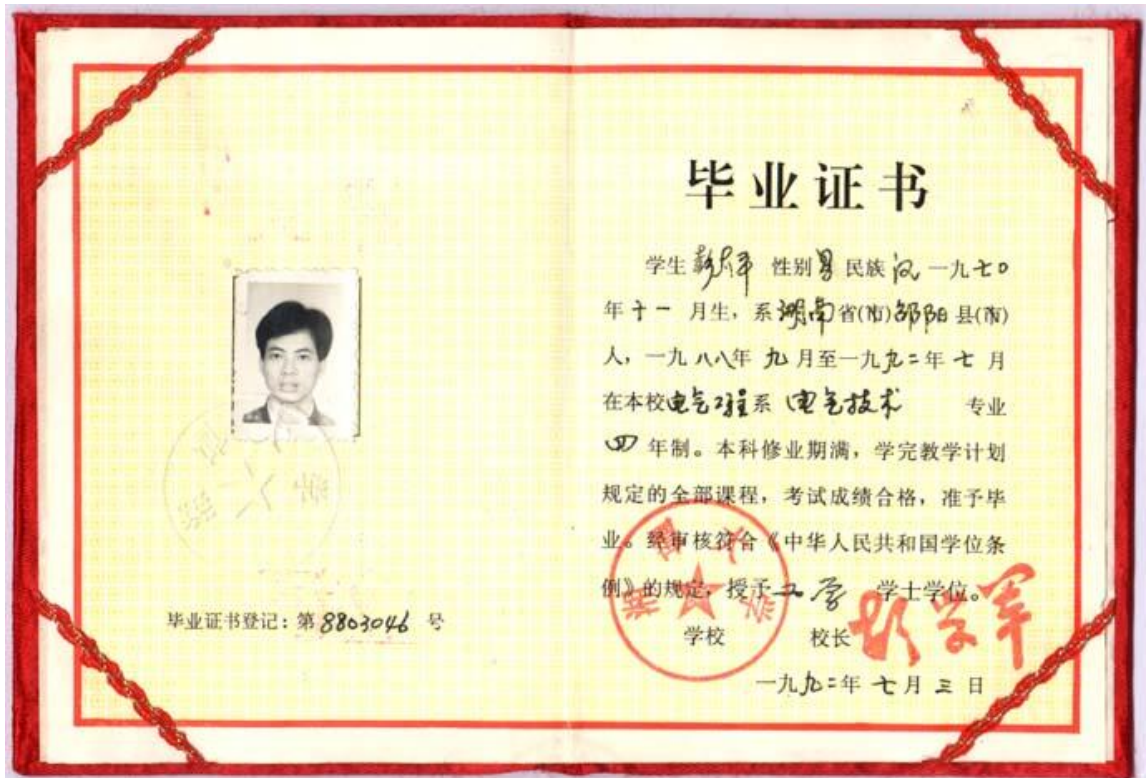 毕业证书
学生 性别男民族汉一九七〇
年十一月生，系湖南省(市)邵阳县(市)
人，一九八八年九月至一九九二年七月
在本校电气工程系电气技术 专业
四年制。本科修业期满，学完教学计划
规定的全部课程，考试成绩合格，准予毕
业。经审核符合《中华人民共和国学位条
例》的规定，授予工学 学士学位。
学校 校长
一九九二年七月三日
毕业证书登记：第8803046号